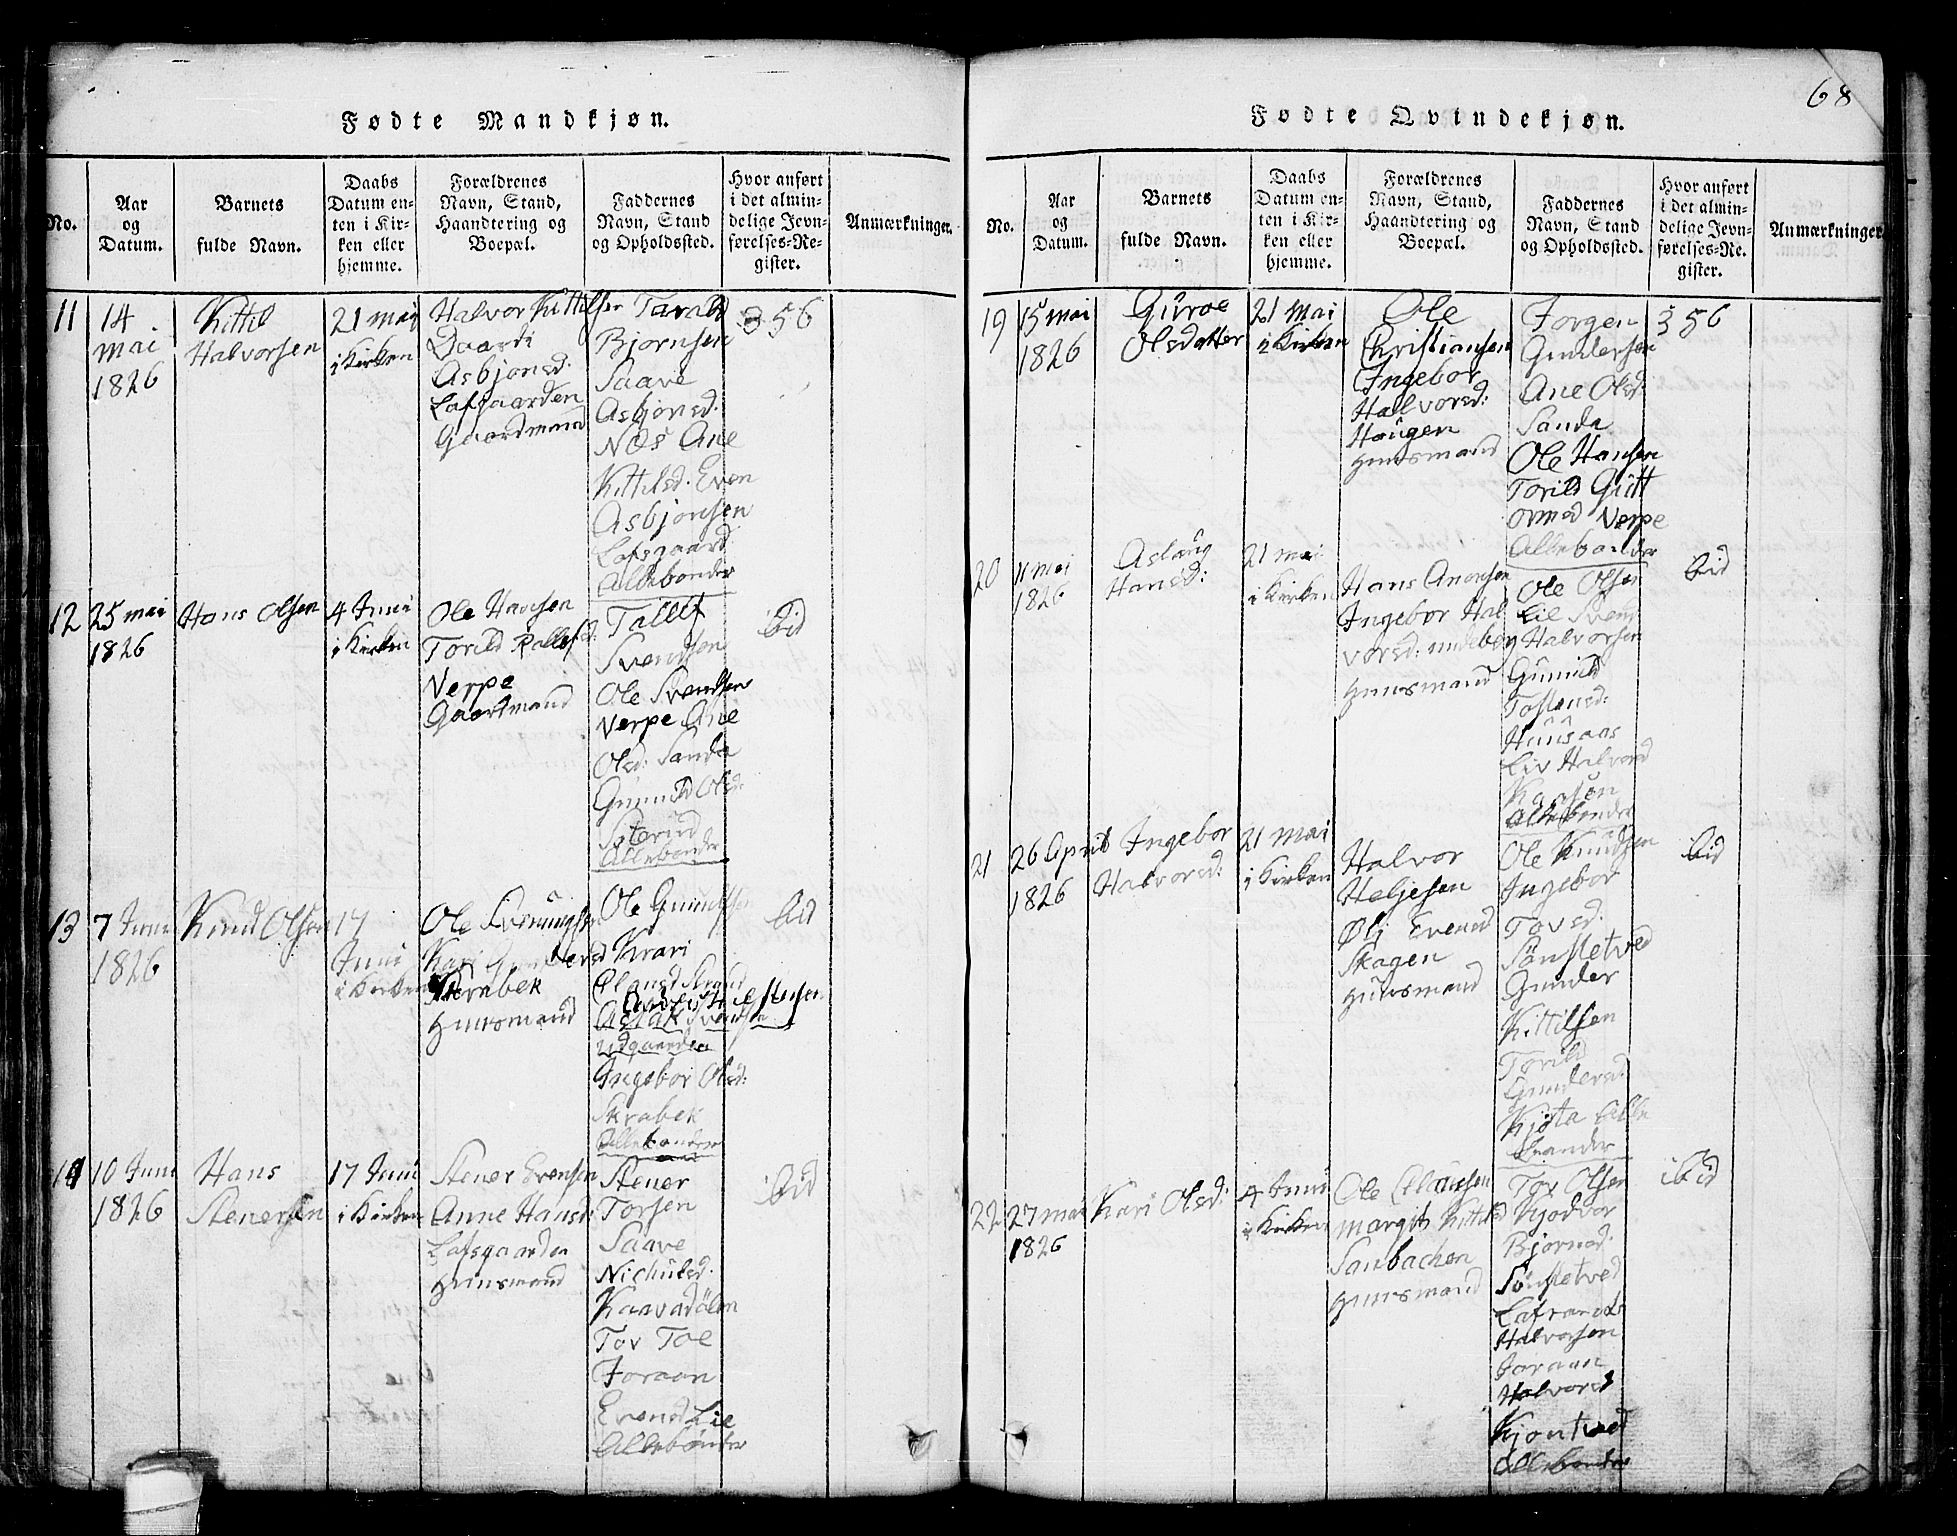 68
Fødte Mandkjøn.
No.
Aar
og
Datum.
Barnets
fulde Navn.
Daabs
Datum en-
ten i Kir-
ken eller
hjemme.
Forældrenes
Navn, Stand,
Haandtering og
Boepæl.
Faddernes
Navn, Stand
og Opholdssted.
Hvor anført
i det almin-
delige Jevn-
førelses-Re-
gister.
Anmærkninger.
11
14
mai
1826
Kittil
Halvorsen
21 mai
i Kirken
Halvor Kittilsen
Daardi
Asbjonsd:
Lafsgaarden
Gaardmand
Tarald
Bjornsen
Saave
Asbjonsd:
Næs Ane
Kittilsd. Even
Asbjonsen
Lafsgaard
Allebonder
356
12
25 mai
1826
Hans Olsen
4 Juni
i Kirken
Ole Hansen
Torild
Verpe
Gaartmand
Svendsen
Ole Svendsen
Verpe Ane
Olsd: Sanda
Gunild Olsd:
Allebonder
ibid
13
7 Juni
1826
Knud Olsen
17
Juni
i Kirken
Ole Svenungsen
Kari
Skrabek
Huusmand
Ole Gunuldsen
Aslak Svendsen
Udgaarden
Ingebor Olsd:
Skrabek
Allebonder
ibid
14
10 Juni
1826
Hans
Stenersen
17 Juni
i Kirken
Stener Evensen
Anne Hansd:
Lafsgaarden
Huusmand
Stener
Torsen
Saave
Nichulsd.
Kaavadalen
Tov Toe
Joraan
Evensd Lie
Allebonder
ibid
Fødte Qvindekjøn.
No.
Aar
og
Datum.
Barnets
fulde Navn.
Daabs
Datum en-
ten i Kir-
ken eller
hjemme.
Forældrenes
Navn, Stand,
Haandtering og
Boepæl.
Faddernes
Navn, Stand
og Opholdssted.
Hvor anført
i det almin-
delige Jevn-
førelses-Re-
gister.
Anmærkninger
19
15 mai
1826
Guroe
Olsdatter
21 mai
i Kirken
Ole
Christiansen
Ingebor
Halvorsd:
Haugen
Huusmand
Jorgen
Gundersen
Ane Olsd:
Sanda
Ole Hansen
Torild Gutt
ormsd Verpe
Allebonder
356
20
11 mai
1826
Aslaug
Hansd:
21 mai
i Kirken
Hans Anonsen
Ingebor Hal
vorsd: undebøy
Huusmand
Ole Olsen
Lie Svenn
Halvorsen
Gunild
Tostensd:
Huusaas
Liv Halvorsd
Kaasen
Allebonder
ibid
21
26 April
1826
Ingebor
Halvorsd:
21 Mai
i Kirken
Halvor
Heljesen
Ølj Evensd
Skagen
Huusmand
Ole Knudsen
Ingebor
Tovsd:
Sønstetved
Gunder
Kittilsen
Torild
Gundersd:
Kjøsta Alle
bonder
ibid
22
27 mai
1826
Kari Olsd:
4 Juni
i Kirken
Ole Clausen
Margit Kittilsd
Sanbachen
Huusmand
Tov Olsen
Kjodvor
Bjornsd.
Sønstetved
Lafrands
Halvorsen
Joraan
Halvorsd
Kjontved
Allebonder
ibid